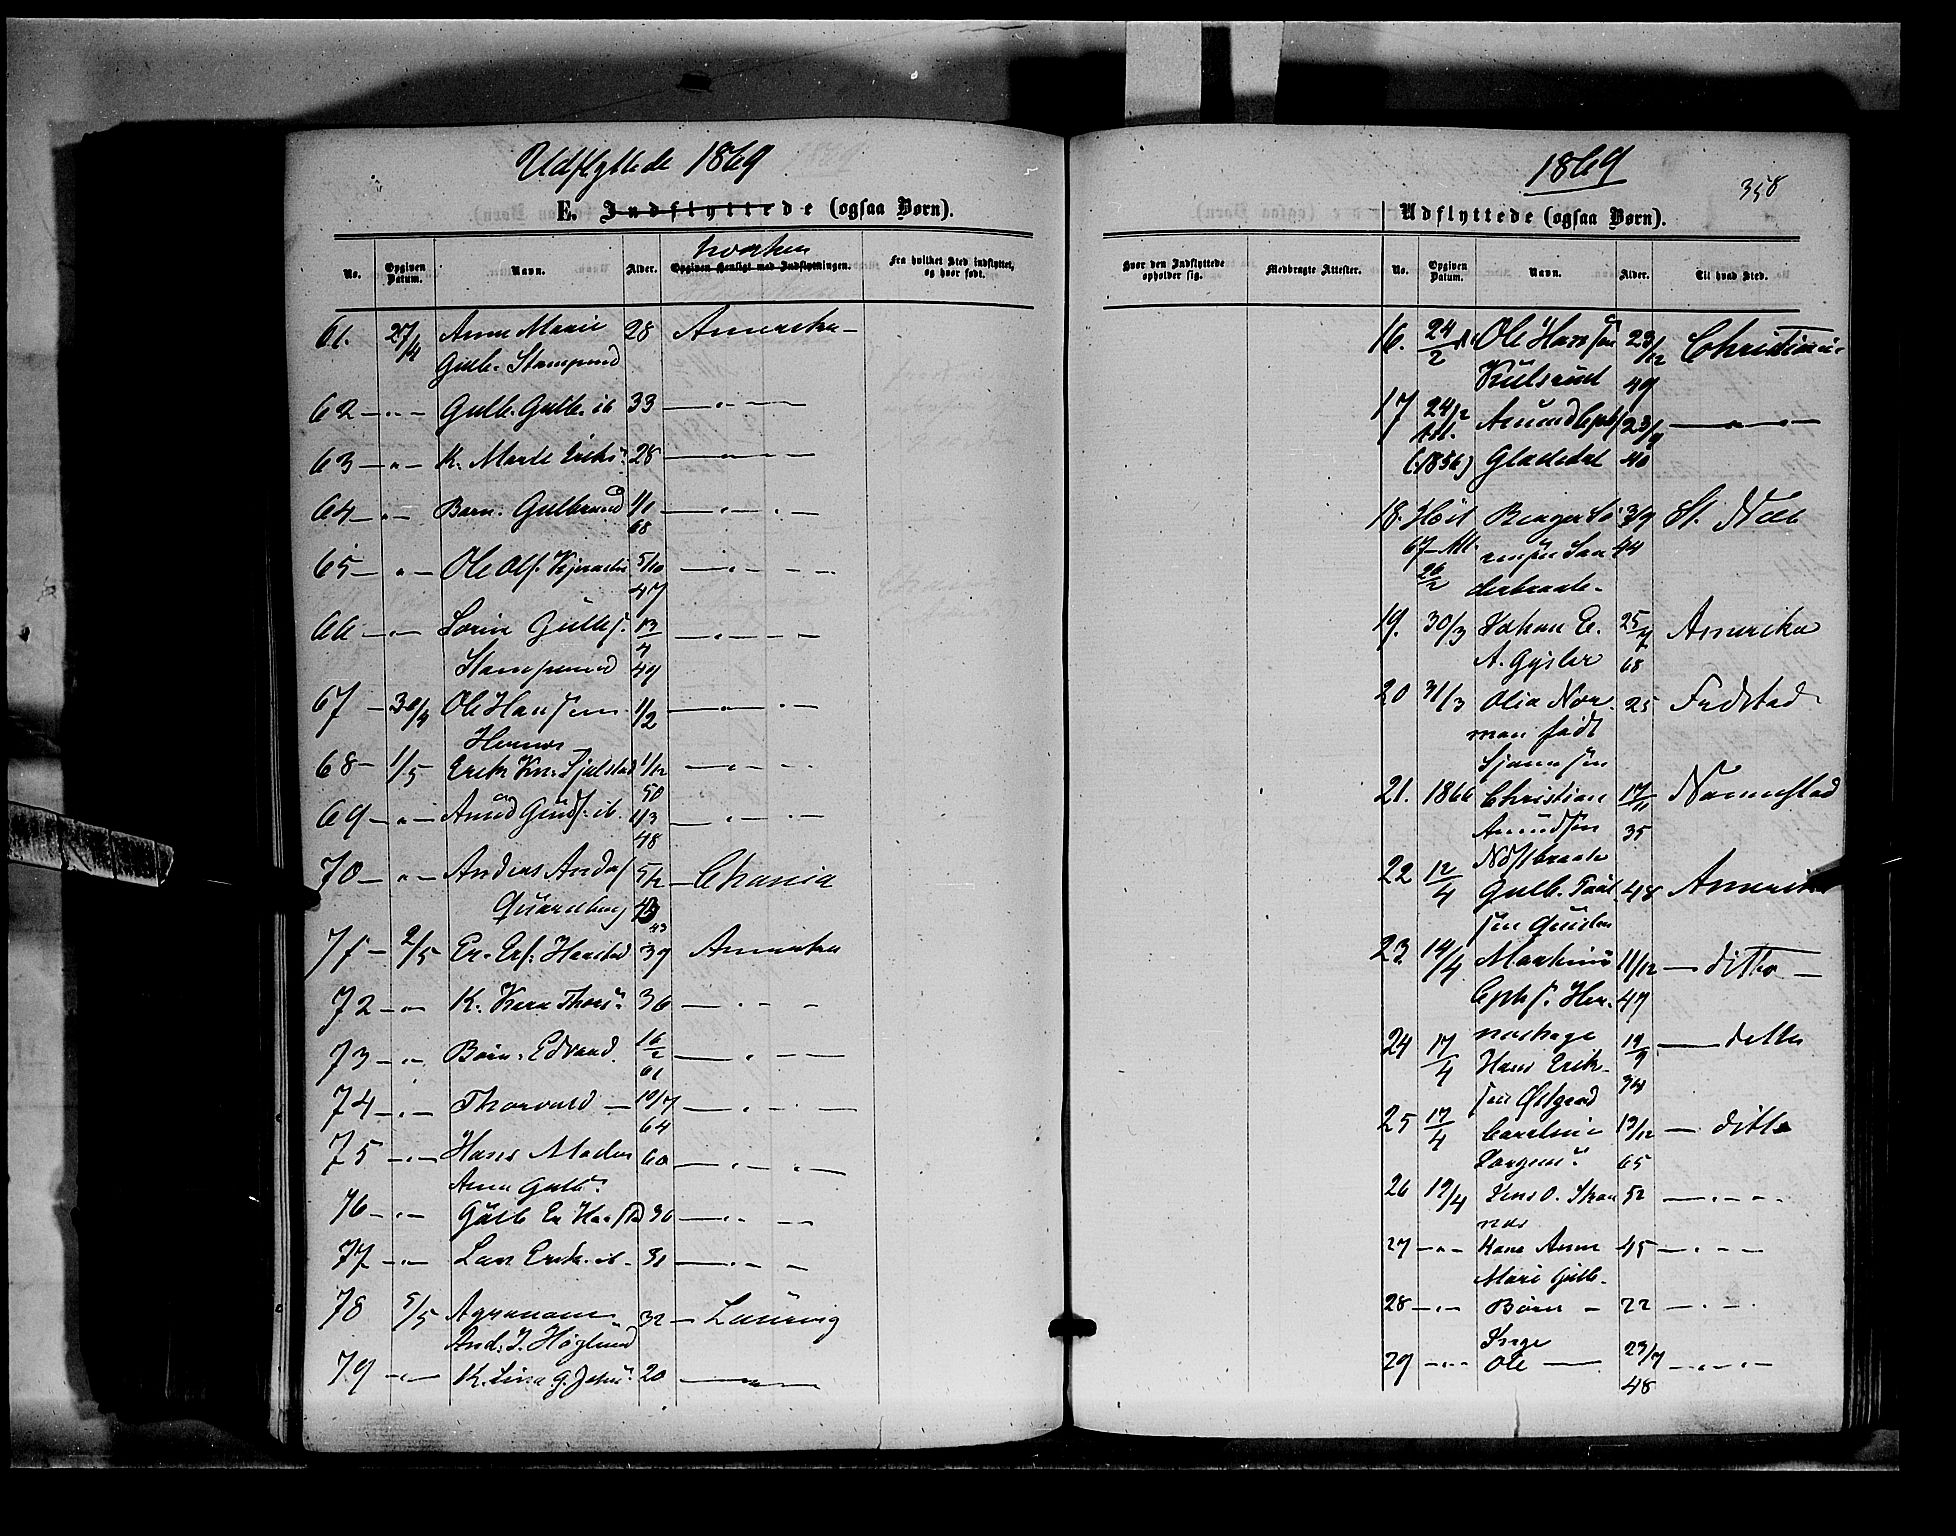 Udflyttede 1869
E. Indflyttede (ogsaa Børn).
hvorhen
No. Opgiven Datum. Navn. Alder. Opgiven Hensigt med Indflytningen. Fra hvilket Sted indflyttet, og hvor født.
61. 27/4 Anne Marie 28 Amerika
Gulb. Stampend
62 — " — Gulb. Gulb. ib 33 — " —
63 — " — K. Marte Eriks. 28 — " —
64 — " — Barn: Gulbrand 1/1 — " —
68
65 — " — Ole Ols. 5/10 — " —
47
66 — " — Gulbs. 13/4 — " —
49
67 — 30/4 Ole Hansen 1/2 — " —
Hernes
68 — 1/5 Erik Kn. Fjelstad 1/12 — " —
50
69 — " — ib. 1/3 — " —
48
70 — " — Anders Anders. 5/12 — Chania
43
71 — 2/5 Er. Ers. Haarstad 39 Amerika
72 — " — K. Kari Thors. 36 — " —
73 — " — Børn: Edvard 16/2 — " —
61
74 — " — Thorvald — 10/7 — " —
64
75 — " — Hans Moder 60 — " —
Anne Gulb.
76 — " — Gulb Er 30 — " —
77 — " — Lars Erik. ib. 31 — " —
78 5/5 Agronom 32 — Laurvig
And: J. Høglund
79 — " — K. Lina g. Johs. 20 — " —
1869
358
Udflyttede (ogsaa Børn).
Hvor den Indflyttede opholder sig. Medbragte Attester. No. Opgiven Datum. Navn. Alder. Til hvad Sted.
16. 24/2 Ole Hanssen 23/12 Christiania
Kulsrud 49
17 24/2 Amund Ephs 23/9 — " —
Att.
(1856) Gladedal 40
18. Høst 3/9 St. Næs
67 Att. 44
26/2
19. 30/3 Johan E. 25/7 Amerika
A. Gysler 68
20 31/3 Olia Nor 25 Fredstad
man født
21. 1866 Christian 17/11 Nannestad
Amundsen 35
22 12/4 Gulb. Paul 48 Amerika
sen
23 14/4 Martinus 11/12 — ditto —
Ephs. Her 47
neshage
24 17/4 Hans Erik 19/9 — ditto
sen Østgaard 34
25 17/4 Caroline 13/12 — ditto
65
26 19/4 Jens O. 52 — " —
27 — " — Kone Anne 45 — " —
Mari Gulb.
28 — " — Børn — 22 — " —
Inge
29 — " — Ole — 23/7 — " —
48